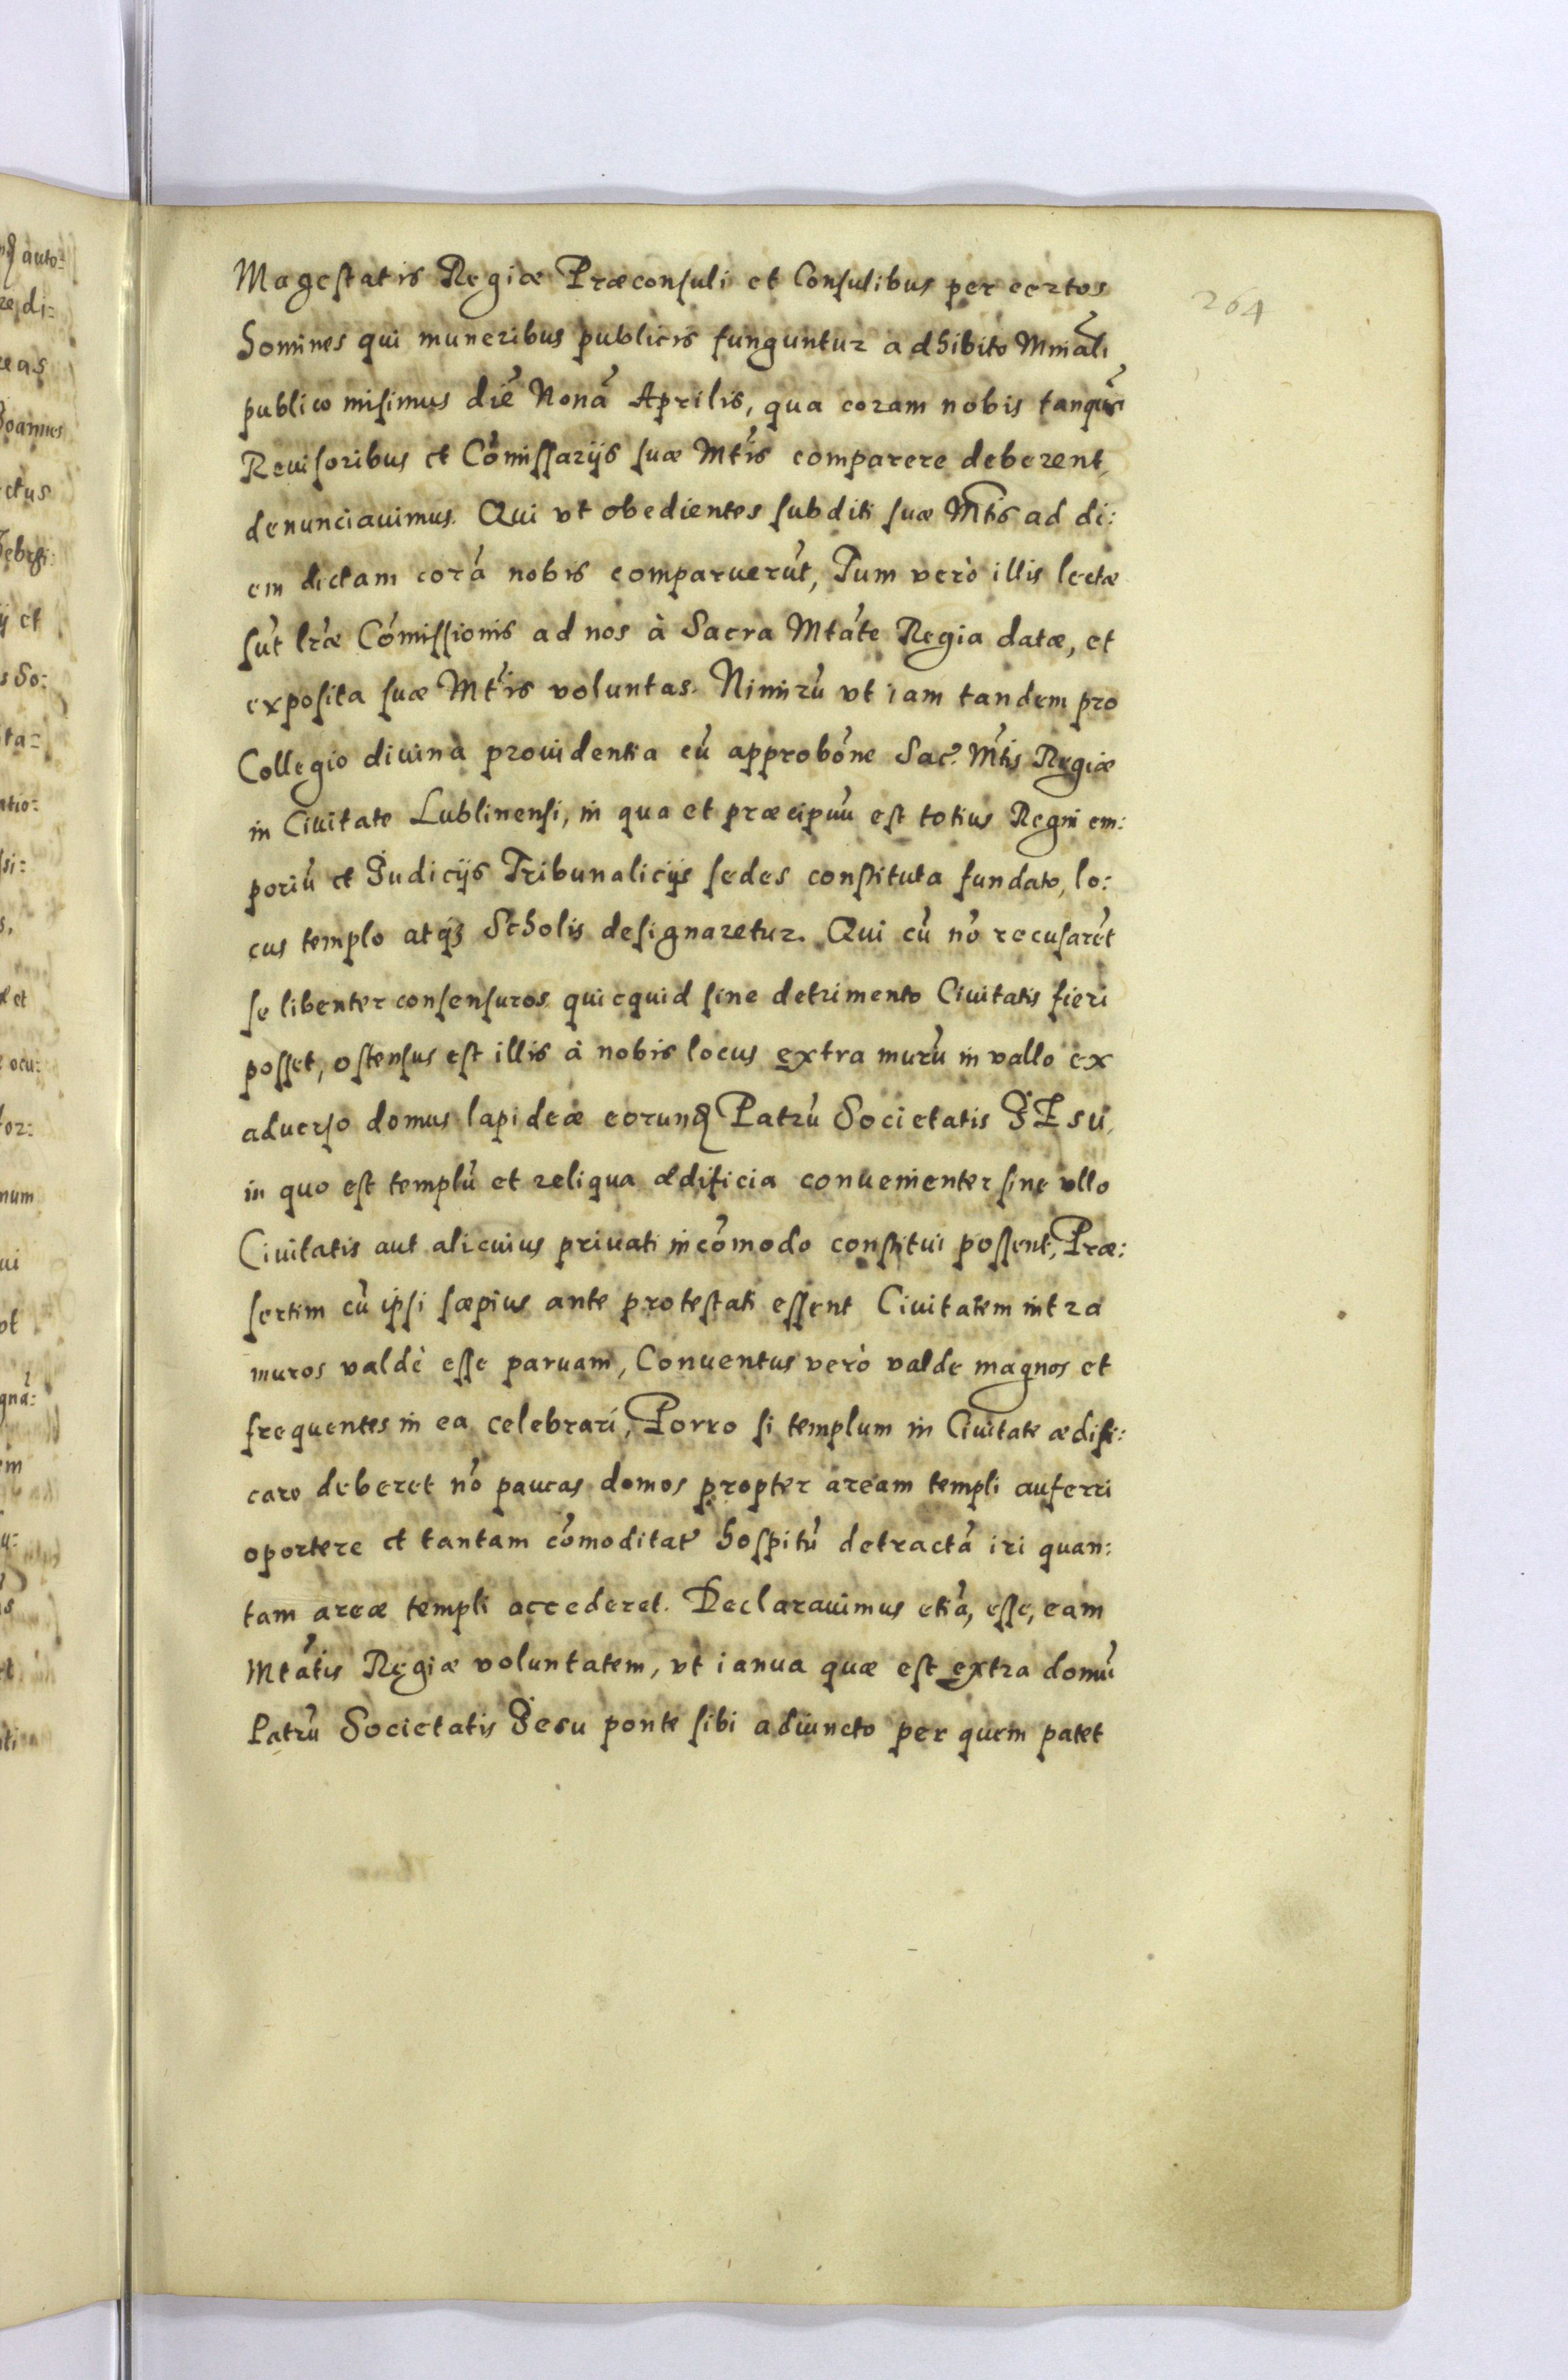 264
Magestatis Regiæ Præconsuli et Consulibus per certos
homines qui muneribus publicis funguntur adhibito Minãli
publico misimus diẽ Nonã Aprilis, qua coram nobis tanquã
Reuisoribus et Cõmissarijs suæ Mtis comparere deberent,
denunciauimus. Qui vt obedientes subditi suæ Mtis ad di:
em dictam corã nobis comparuerũt, Tum verò illis lectæ
sũt lræ Cõmissionis ad nos à Sacra Mtate Regia datæ, et
exposita suæ Mtis voluntas. Nimirũ vt iam tandem pro
Collegio diuina prouidentia cũ approbõne Sac. Mtis Regiæ
in Ciuitate Lublinensi, in qua et præcipuũ est totius Regni em:
poriũ et Iudicijs Tribunalicijs sedes constituta fundato, lo:
cus templo atqꝫ Scholis designaretur. Qui cũ nõ recusarẽt
se libenter consensuros quicquid sine detrimento Ciuitatis fieri
posset, ostensus est illis à nobis locus extra murũ in vallo ex
aduerso domus lapideæ eorundẽ Patrũ Societatis IEsu,
in quo est templũ et reliqua ædificia conuenienter sine vllo
Ciuitatis aut alicuius priuati incõmodo constitui possent, Præ:
sertim cũ ipsi sæpius ante protestati essent Ciuitatem intra
muros valdè esse paruam, Conuentus verò valde magnos et
frequentes in ea celebrari, Porro si templum in Ciuitate ædifi:
care deberet nõ paucas domos propter aream templi auferri
oportere et tantam cõmoditatẽ hospitũ detractã iri quan:
tam areæ templi accederet. Declarauimus etiã, esse, eam
Mtatis Regiæ voluntatem, vt ianua quæ est extra domũ
Patrũ Societatis Iesu ponte sibi adiuncto per quem patet